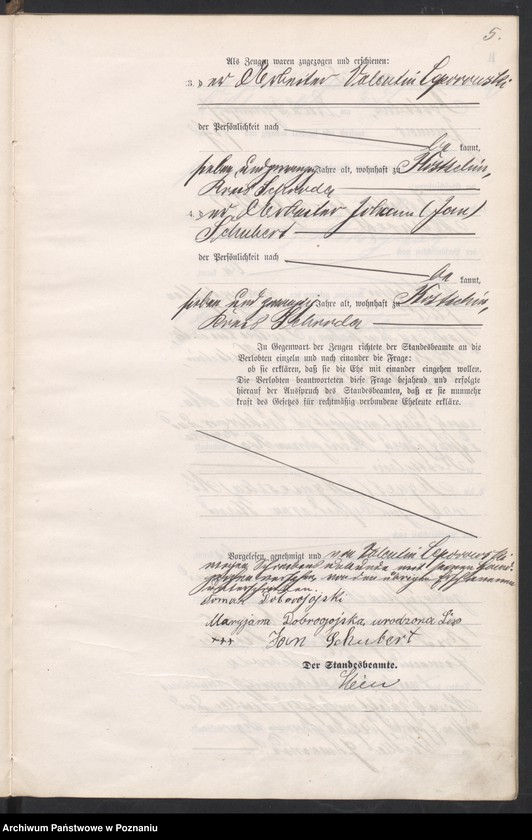 5.
Als Zeugen waren zugezogen und erschienen:
3. der Arbeiter Valentin
der Persönlichkeit nach
be kannt,
sieben und zwanzig Jahre alt, wohnhaft zu Kostschin,
Kreis Schroda
4. der Arbeiter Johann (Jan)
Schubert
der Persönlichkeit nach
be kannt,
sieben und zwanzig Jahre alt, wohnhaft zu Kostschin,
Kreis Schroda
In Gegenwart der Zeugen richtete der Standesbeamte an die
Verlobten einzeln und nach einander die Frage:
ob sie erklären, daß sie die Ehe mit einander eingehen wollen.
Die Verlobten beantworteten diese Frage bejahend und erfolgte
hierauf der Ausspruch des Standesbeamten, daß er sie nunmehr
kraft des Gesetzes für rechtmäßig verbundene Eheleute erkläre.
Vorgelesen, genehmigt und von Valentin
wegen Schreibensunkunde mit seinem Hand-
zeichen versehen, von den übrigen Erschienenen
unterschrieben.
Roman Dobrogojski
Maryjana Dobrogojska, urodzona
+++ Jan Schubert
Der Standesbeamte.